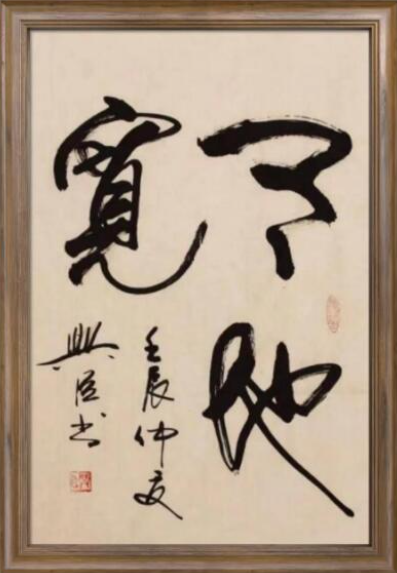 天地
寬
壬辰仲夏
興臣书